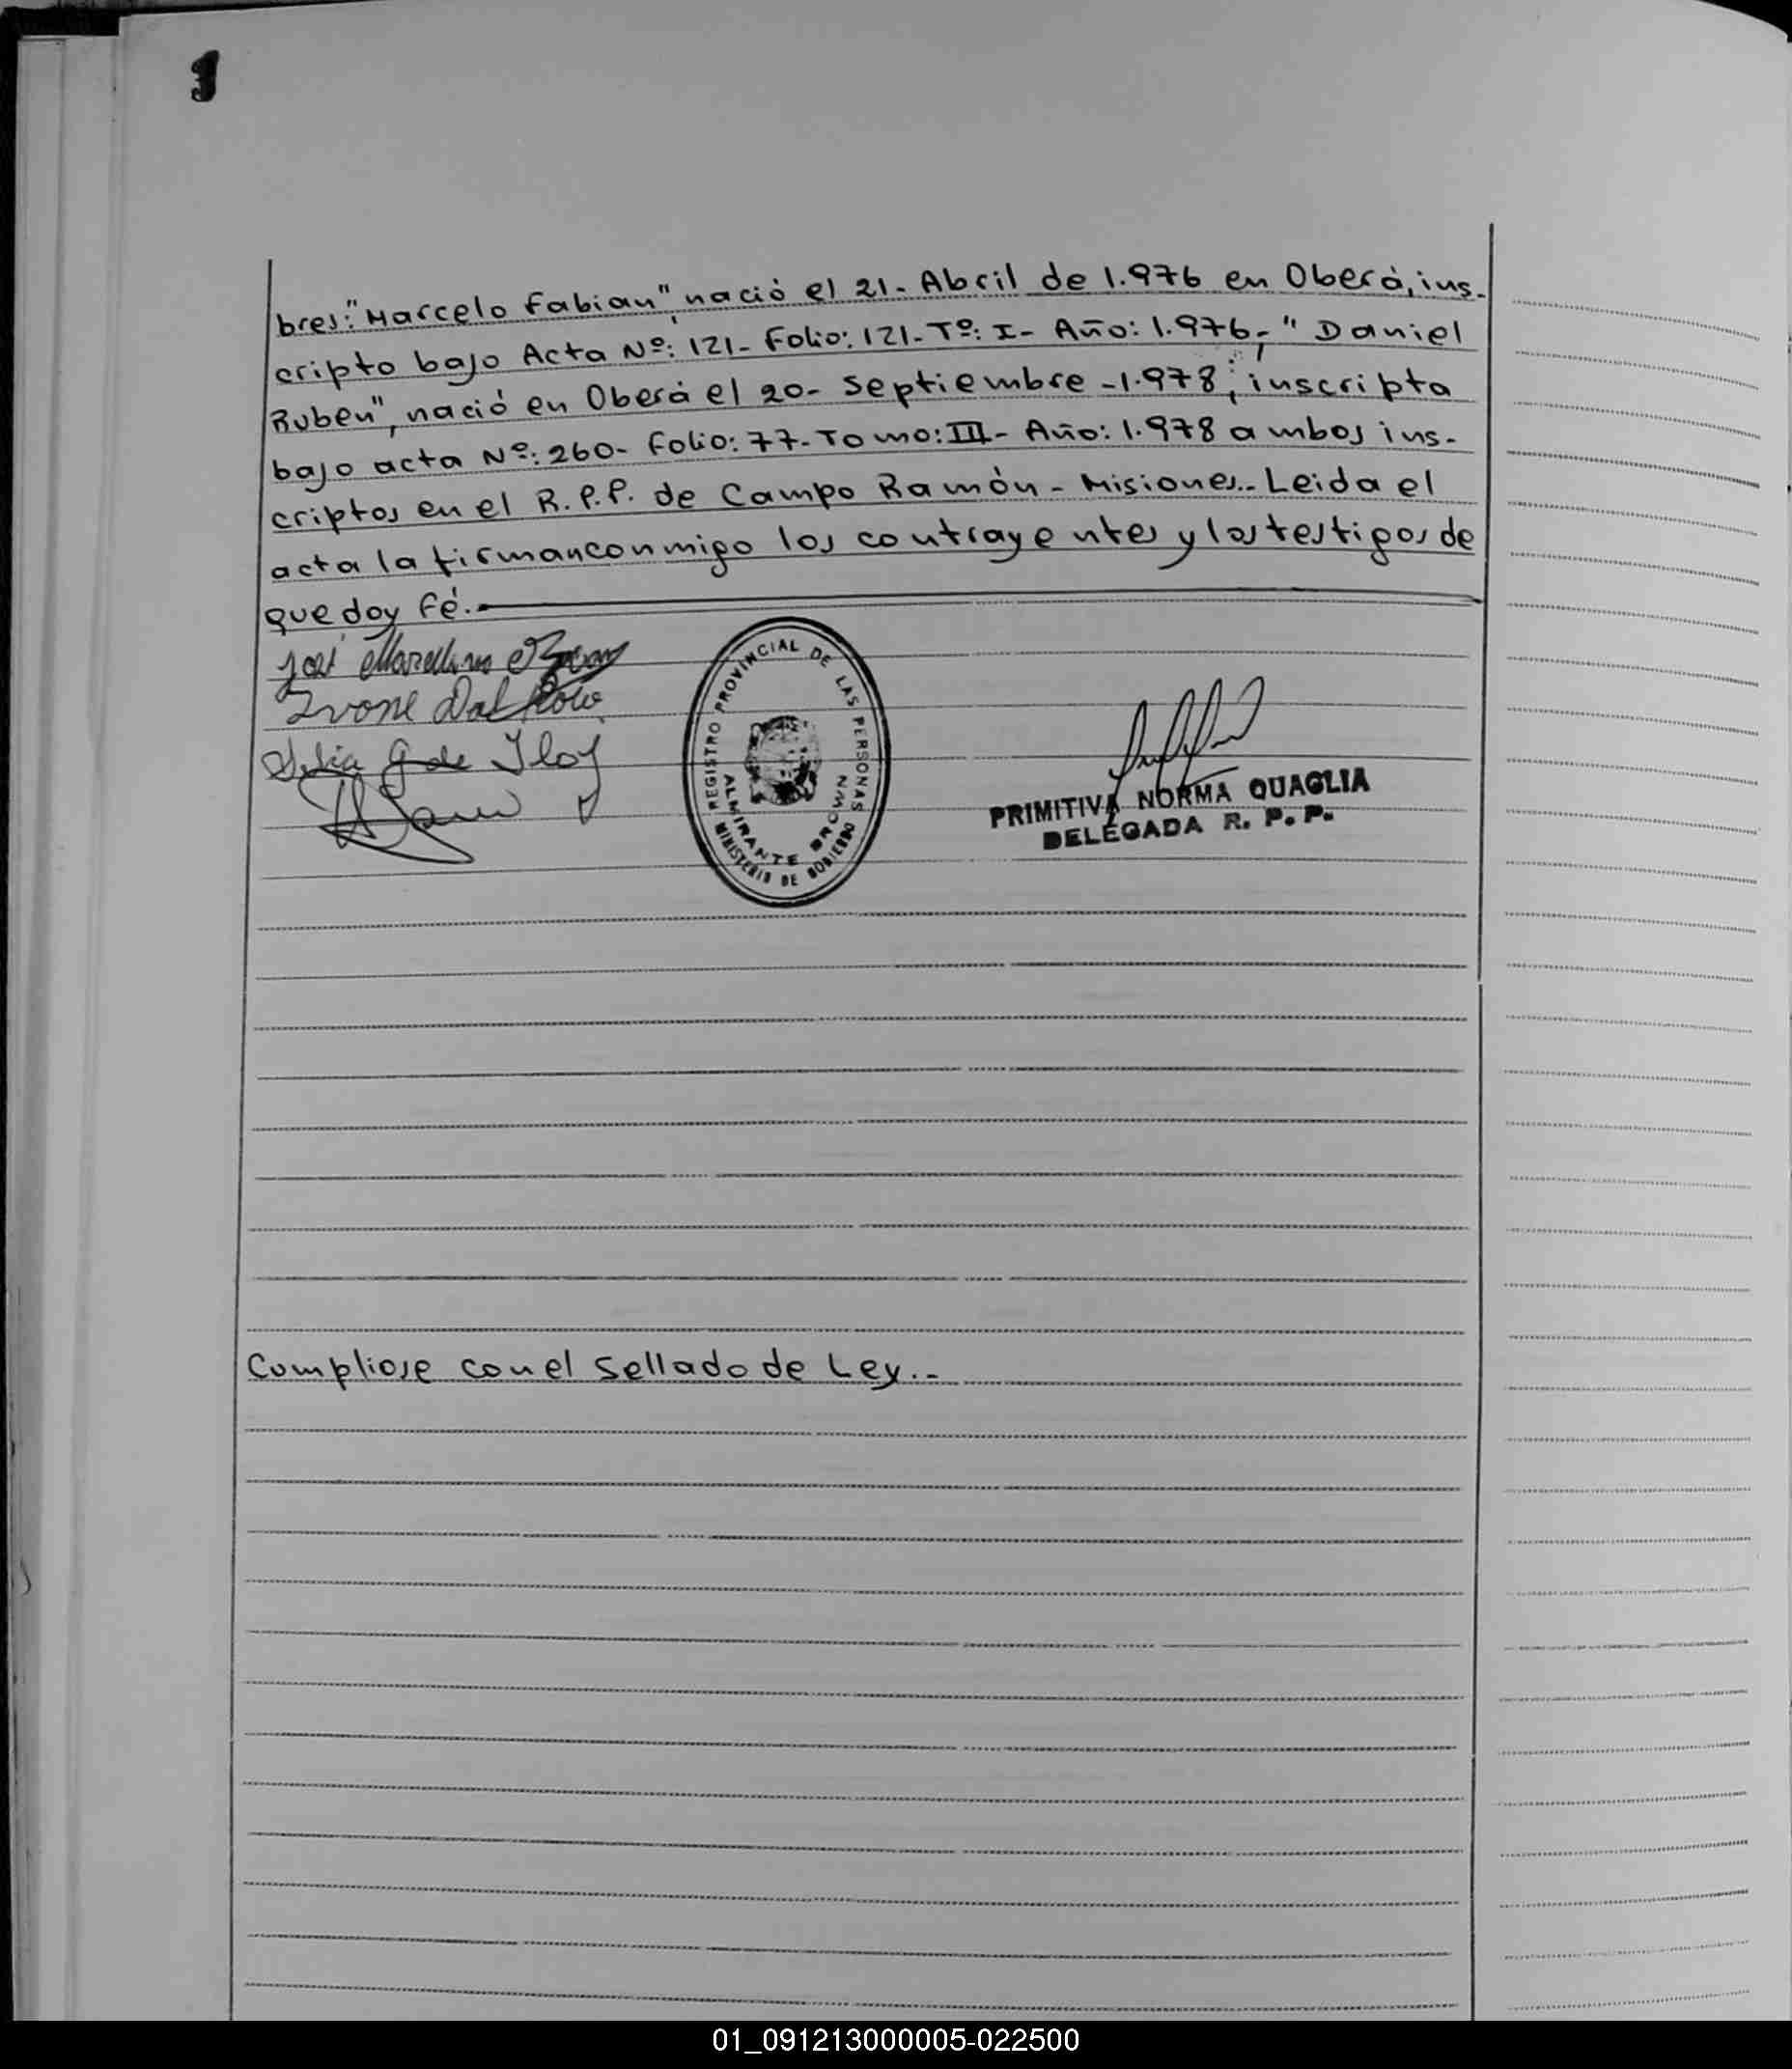 bres: "Marcelo Fabian" nació el 21- Abril de 1.976 en Oberá, ins-
cripto bajo Acta Nº: 121- Folio: 121- Tº: I- Año: 1.976.- "Daniel
Ruben", nació en Oberá el 20- Septiembre -1.978; inscripta
bajo acta Nº: 260- Folio: 77- Tomo: III- Año: 1.978 ambos ins-
criptos en el R.P.P. de Campo Ramón - Misiones.- Leida el
acta la firman conmigo los contrayentes y los testigos de
que doy fé.-
José Marcelino
Ivone Dal
Delia G de
REGISTRO PROVINCIAL DE LAS PERSONAS
ALMIRANTE BROWN
MINISTERIO DE GOBIERNO
PRIMITIVA NORMA QUAGLIA
DELEGADA R. P. P.
Cumpliose con el Sellado de Ley.-
01_091213000005-022500